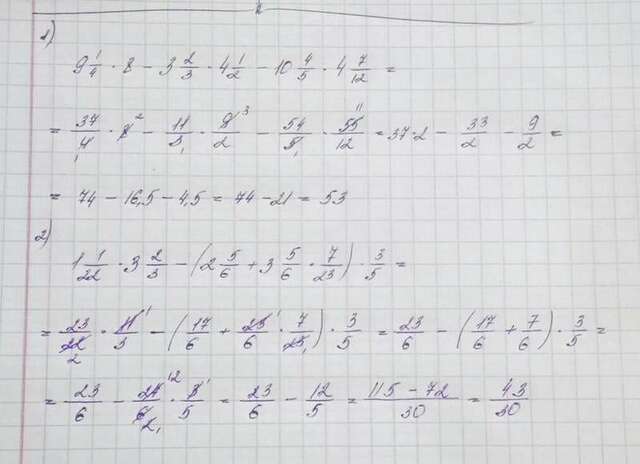 1)
9 1/4 · 8 − 3 2/3 · 4 1/2 − 10 4/5 · 4 7/12 =
= 37/4 · 8 − 11/3 · 9/2 − 54/5 · 55/12 = 37·2 − 33/2 − 9/2 =
= 74 − 16,5 − 4,5 = 74 − 21 = 53
2)
1 1/22 · 3 2/3 − (2 5/6 + 3 5/6 · 7/23) · 3/5 =
= 23/22 · 11/3 − (17/6 + 23/6 · 7/23) · 3/5 = 23/6 − (17/6 + 7/6) · 3/5 =
= 23/6 − 24/6 · 3/5 = 23/6 − 12/5 = 115 − 72/30 = 43/30